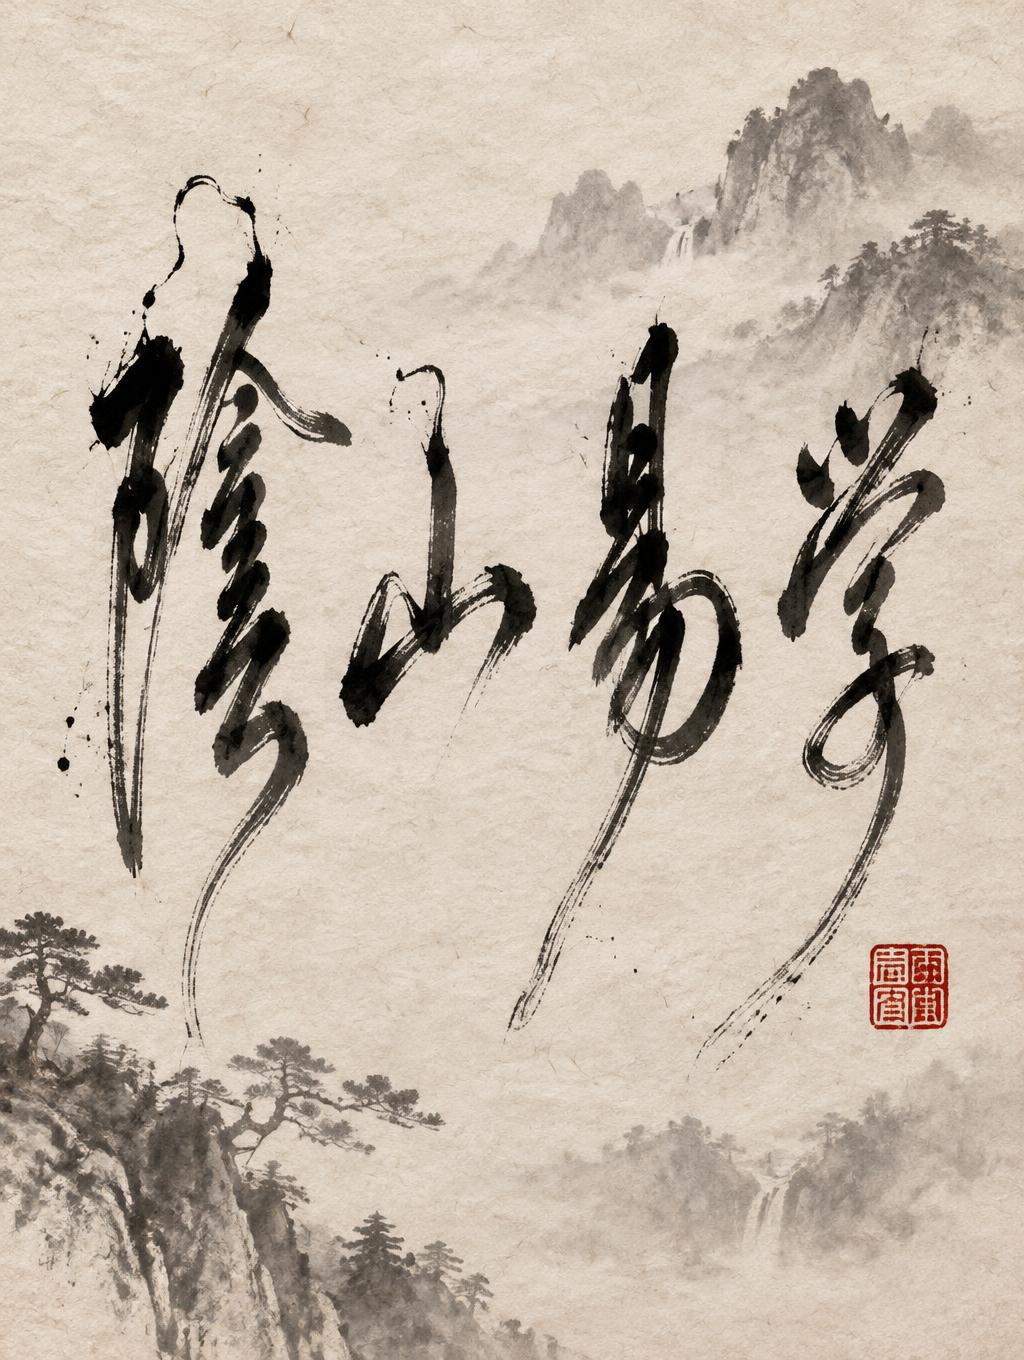 陰山易学